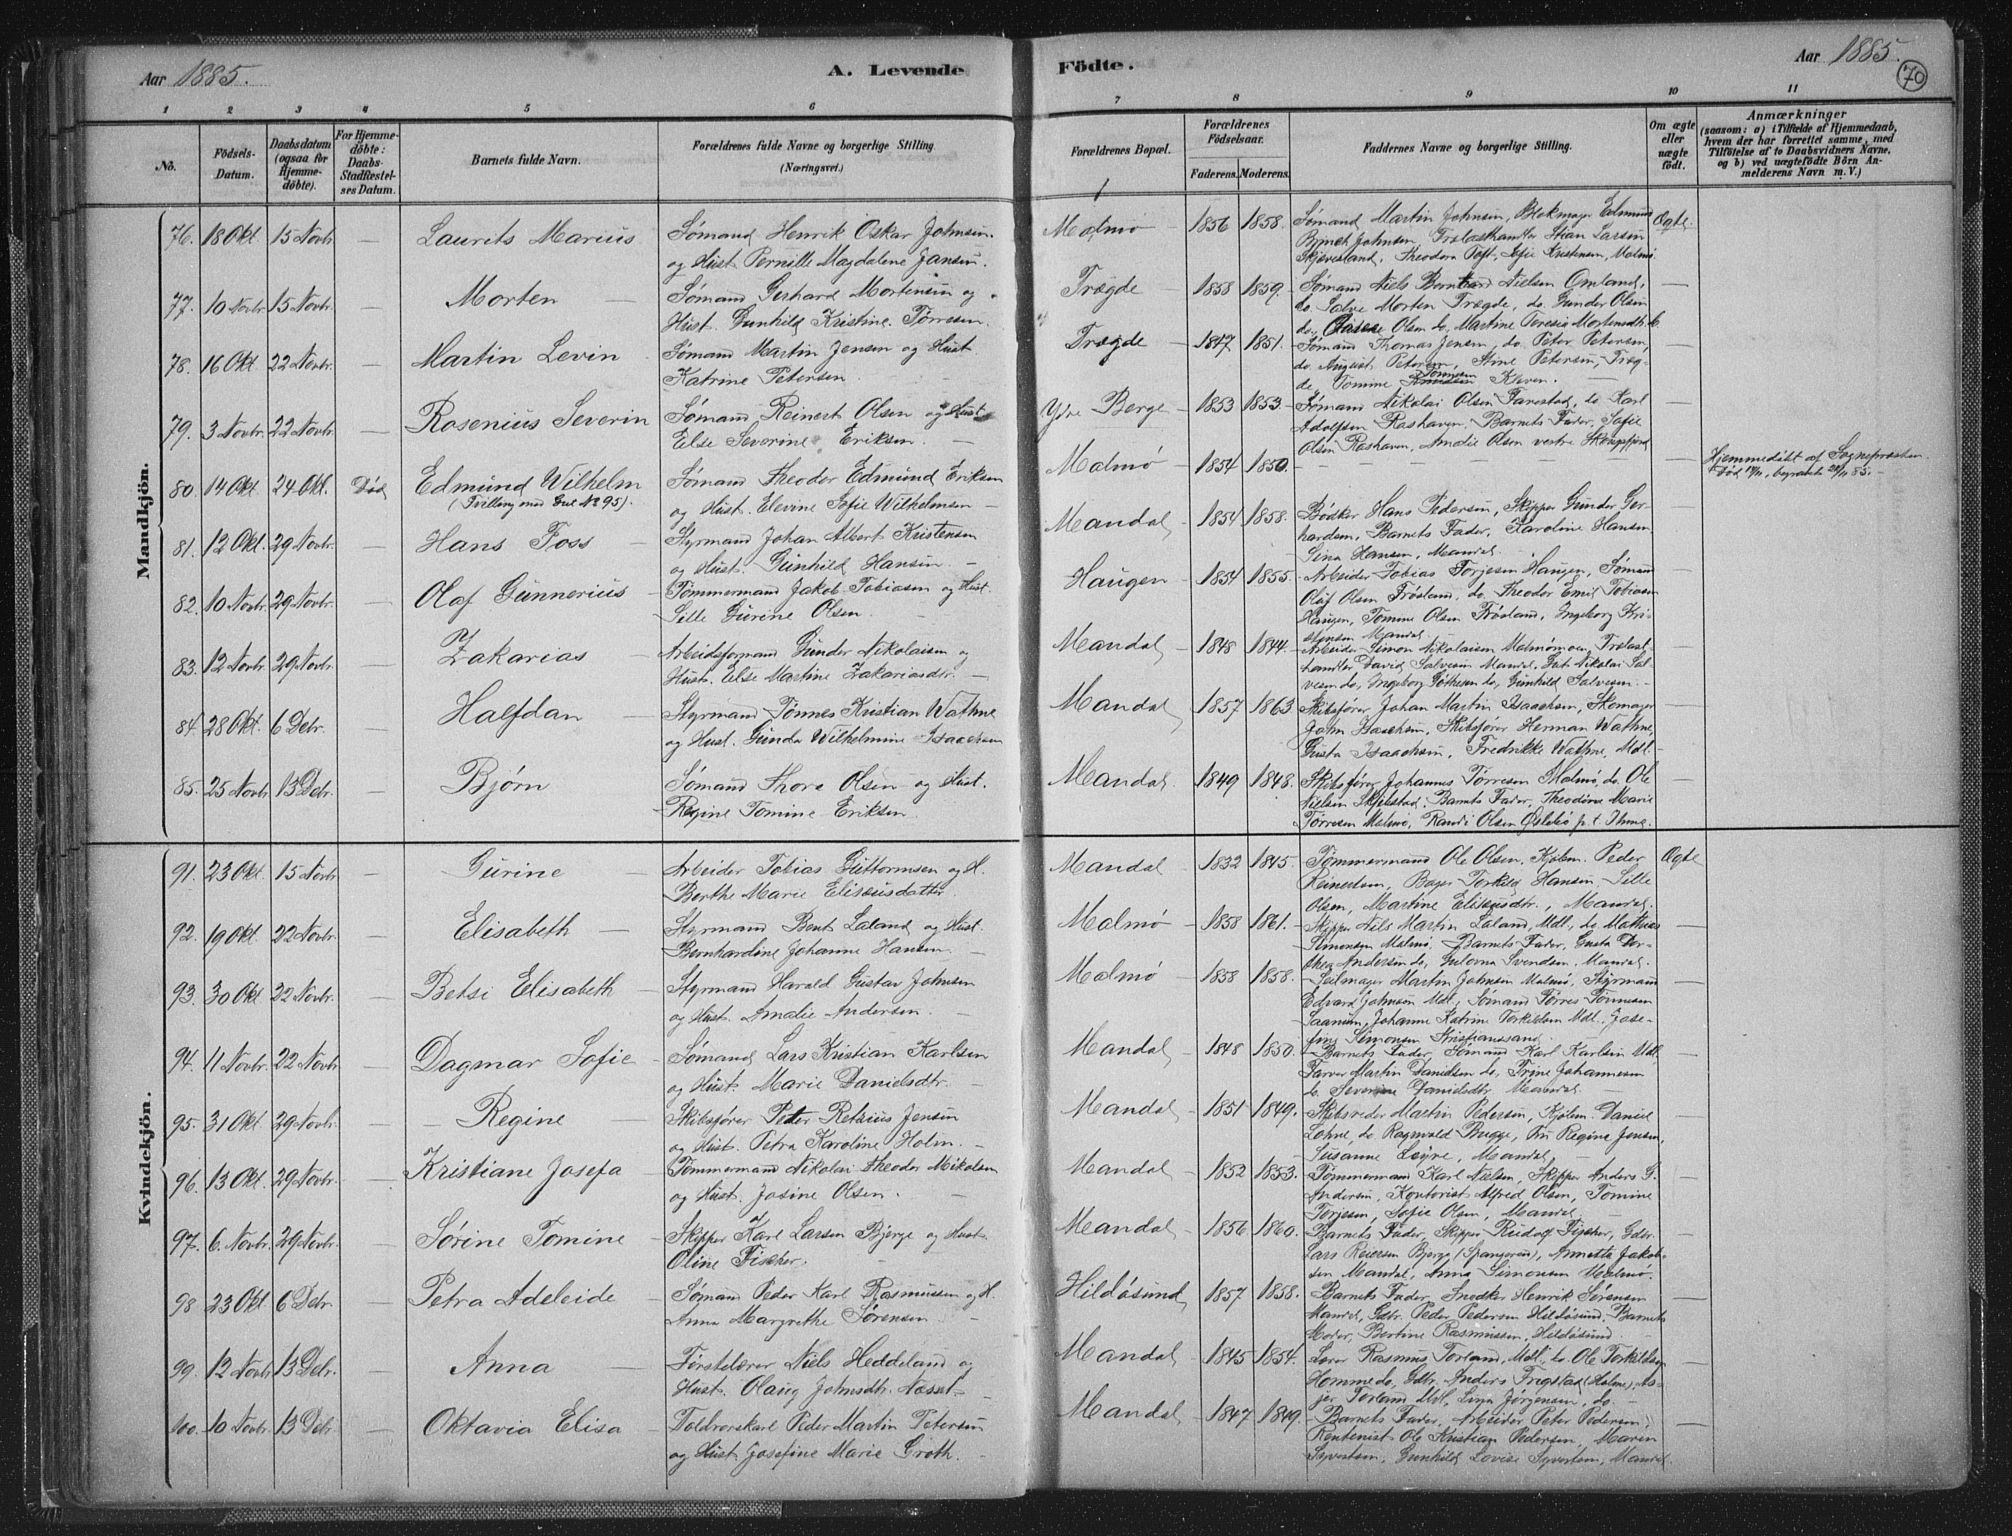 Aar 1885.
A. Levende
Födte.
Aar 1885.
70
1 2 3 4 5 6 7 8 9 10 11
No.
Födsels-Datum.
Daabsdatum (ogsaa for Hjemmedöbte).
For Hjemmedöbte: Daabs-Stadfæstelses Datum.
Barnets fulde Navn.
Forældrenes fulde Navne og borgerlige Stilling.
(Næringsvei.)
Forældrenes Bopæl.
Forældrenes Födselsaar.
Faderens. Moderens.
Faddernes Navne og borgerlige Stilling.
Om ægte eller uægte födt.
Anmærkninger
(saasom: a) i Tilfælde af Hjemmedaab, hvem der har forrettet samme, med Tilföielse af to Daabsvidners Navne, og b) ved uægtefödte Börn Anmelderens Navn m. V.)
Mandkjön.
76. 18 Okt. 15 Novbr. — Laurits Marius Sømand Henrik Oskar Johnsen og Hust. Pernille Magdalene Jansen. Malmø 1856 1858. Sømand Martin Johnsen, Blokmager Edmund Johnsen, Stian Larsen Skjævesland, Theodora Toft, Sofie Kristensen, Malmø. Ægte.
77. 10 Novbr. 15 Novbr. — Morten — Sømand Gerhard Mortensen og Hust. Gunhild Kristine Tørresen. Trægde — 1858 1859. Sømand Niels Berntsen Omland, do. Salve Morten Trægde, do. Gunder Olsen do, Olsen do, Martine Teresia Mortensdtr. do. —
78. 16 Okt. 22 Novbr. — Martin Levin Sømand Martin Jensen og Hust Katrine Petersen. Trægde — 1847 1851. Sømand Thomas Jensen, do. Peter Petersen, do. August Petersen, Stine Petersen, Trægde, Tomine Tønnesen Kleven. —
79. 3 Novbr. 22 Novbr. — Rosenius Severin Sømand Reinert Olsen og Hust. Else Severine Eriksen. — Ydre Berge — 1853 1853 Sømand Nikolai Olsen Farestad, do Karl Adolfsen Rashaven, Barnets Fader, Sofie Olsen Rashaven, Amalie Olsen vestre Skogsfjord —
80. 14 Okt. 24 Okt. Død Edmund Wilhelm (Tvilling med No 95). Sømand Theodor Edmund Eriksen og Hust. Elevine Sofie Wilhelmsen — Malmø — 1854 1850. — — — Hjemmedøbt af Sognepresten. Død
81. 12 Okt. 29 Novbr. — Hans Foss — Styrmand Johan Albert Kristensen og Hust. Gunhild Hansen. — Mandal — 1854 1858. Bødker Hans Pedersen, Skipper Gunder Gerhardsen, Barnets Fader, Karoline Hansen, Lina Hansen, Mandal. —
82. 10 Novbr. 29 Novbr. — Olaf Gunnerius — Tømmermand Jakob Tobiasen og Hust. Sille Gurine Olsen — Haugen — 1854 1855. Arbeider Tobias Torjesen Haugen, Sømand Oluf Olsen Frøsland, do. Theodor Emil Tobiasen Haugen, Tomine Olsen Frøsland, Ingeborg Kristensen Mandal —
83. 12 Novbr. 29 Novbr. — Zakarias — Arbeidsformand Gunder Nikolaisen og Hust. Else Martine Zakariasdtr. — Mandal — 1848 1844. Arbeider Simon Nikolaisen Malmømoen, David Salvesen Mandal, Nikolai Salvesen do, Ingeborg do, Gunhild Salvesen. —
84. 28 Okt. 6 Debr. — Halfdan — Styrmand Tønnes Kristian Wathne og Hust. Gunda Wilhelmine Isaachsen Mandal — 1857 1863 Skibsfører Johan Martin Isaachsen, Skomager John Isaachsen, Skibsfører Herman Wathne, Gusta Isaachsen, Fredrikke Wathne, Mdl. —
85. 25 Novbr. 13 Debr. — Bjørn Sømand Thore Olsen og Hust. Regine Tomine Eriksen. Mandal — 1849 1848. Skibsfører Johannes Tørresen Malmø do. Ole Nielsen Skjebstad, Barnets Fader, Theodora Marie Tørresen Malmø, Randi Olsen Øslebø p. t. Ihme. —
Kvindekjön.
91. 23 Okt. 15 Novbr. — Gurine — Arbeider Tobias Guttormsen og H. Berthe Marie Eliseusdatter Mandal — 1832 1845. Tømmermand Ole Olsen, Kjøbm. Peder Reinertsen, Bager Torkild Hansen, Sille Olsen, Martine Eliseusdtr., Mandal. Ægte
92. 19 Okt. 22 Novbr. — Elisabeth — Styrmand Bent Laland og Hust. Bernhardine Johanne Hansen. — Malmø — 1858 1861. Skipper Nils Martin Laland, Mdl., do Mathias Simonsen Malmø, Barnets Fader, Gusta Dorthea Andersen do, Svendsen, Mandal. —
93. 30 Okt. 22 Novbr. — Betsi Elisabeth — Styrmand Harald Gustav Johnsen og Hust. Amalie Andersen. — Malmø — 1858 1858. Seilmager Martin Johnsen Malmø, Styrmand Edvard Johnsen Mdl., Sømand Tørres Tønnesen Saanum, Johanne Katrine Torkildsen Mdl., Josefine Simonsen Kristianssand. —
94. 11 Novbr. 22 Novbr. — Dagmar Sofie — Sømand Lars Kristian Karlsen og Hust. Marie Danielsdtr. — Mandal — 1848 1850. Barnets Fader, Sømand Karl Karlsen Mdl, Farver Martin Danielsen do, Trine Johannesen do. Severine Danielsdtr, Mandal —
95. 31 Okt. 29 Novbr. — Regine — Skibsfører Peder Retsius Jensen og Hust. Petra Karoline Holm. — Mandal — 1851 1849. Skibsreder Martin Pedersen, Kjøbm. Daniel Lohne, do. Ragnvald Brugge, Fru Regina Jensen, Susanne Løyre, Mandal. —
96. 13 Okt. 29 Novbr. — Kristiane Josefa — Tømmermand Nikolai Theodor Mikalsen og Hust. Josine Olsen. — Mandal — 1852 1853. Tømmermand Karl Nielsen, Skipper Anders G. Andersen, Kontorist Alfred Olsen, Tomine Torjesen, Sofie Olsen, Mandal. —
97. 6. Novbr. 29 Novbr. — Sørine Tomine — Skipper Karl Larsen Bjerge og Hust. Oline Fischer. — Mandal — 1856 1860. Barnets Fader, Skipper Rudolf Fischer, Gdbr. Lars Reiersen Bjerge (Spangereid), Annetta Jakobsen Mandal, Anna Simonsen Malmø. —
98. 23 Okt. 6 Debr. — Petra Adeleide — Sømand Peder Karl Rasmussen og H. Anna Margrethe Sørensen. — Hildøsund 1857 1858. Barnets Fader, Snedker Henrik Sørensen Mandal, Gdbr. Peder Pedersen Hildøsund, Barnets Moder, Bertine Rasmussen, Hildøsund. —
99. 12 Novbr. 13 Debr. — Anna — Førstelærer Niels Heddeland og Hust. Olaug Johnsdtr. Nesset — Mandal — 1845 1854. Lærer Rasmus Torland, Mdl., do Ole Torkildsen Homme do, Gdbr. Anders Frigstad (Holme), Torland Mdl, Lina Jørgensen, do. —
100. 10 Novbr. 13 Debr. — Oktavia Elisa — Toldrorskarl Peder Martin Petersen og Hust Josefine Marie Groth. — Mandal — 1847 1849. Barnets Fader, Arbeider Peter Pedersen, Rentenist Ole Kristian Pedersen, Maren Syvertsen, Gunhild Lovise Syvertsen, Mandal —